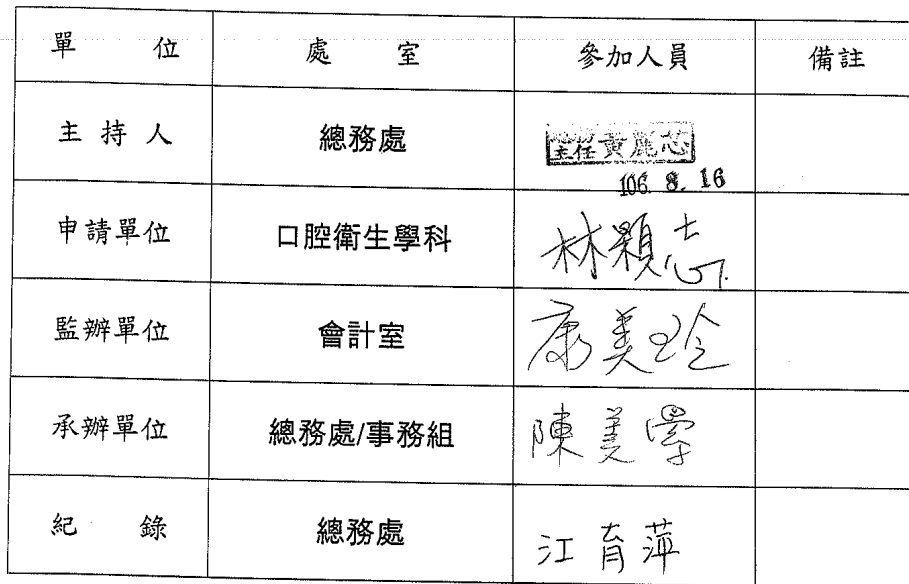 單 位 處 室 參加人員 備註
主 持 人 總務處 總務主任 黃麗芯
106. 8. 16
申請單位 口腔衛生學科 林穎志
監辦單位 會計室 康美玲
承辦單位 總務處/事務組 陳美學
紀 錄 總務處 江育萍